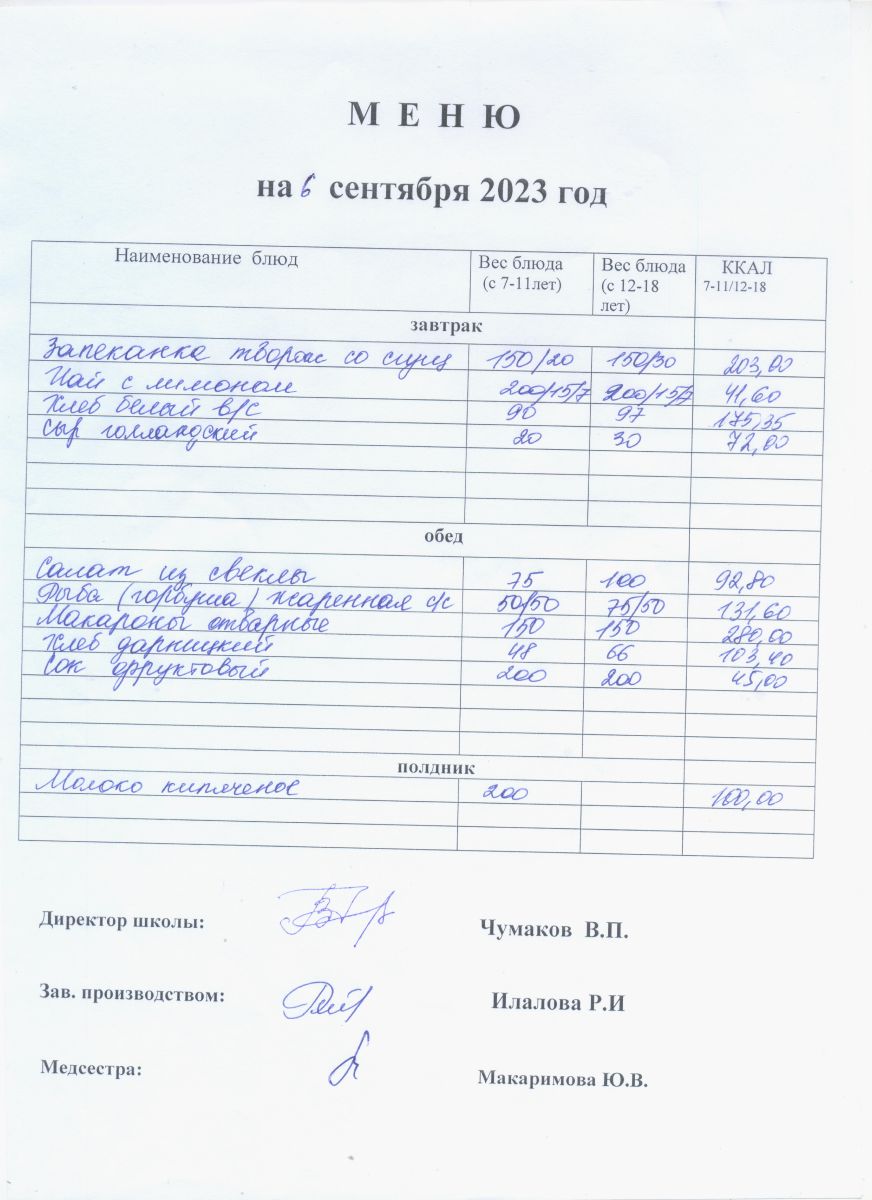 М Е Н Ю
на 6 сентября 2023 год
Наименование блюд Вес блюда (с 7-11лет) Вес блюда (с 12-18 лет) ККАЛ 7-11/12-18
завтрак
Запеканка творож со сгущ 150/20 150/30 203,00
Чай с лимоном 200/15/7 200/15/7 41,60
Хлеб белый в/с 90 97 175,35
Сыр голландский 20 30 72,00
обед
Салат из свеклы 75 100 92,80
Рыба (горбуша) жаренная с/с 50/50 75/50 131,60
Макароны отварные 150 150 280,00
Хлеб дарницкий 48 66 103,40
Сок фруктовый 200 200 45,00
полдник
Молоко кипяченое 200 100,00
Директор школы: Чумаков В.П.
Зав. производством: Илалова Р.И
Медсестра: Макаримова Ю.В.